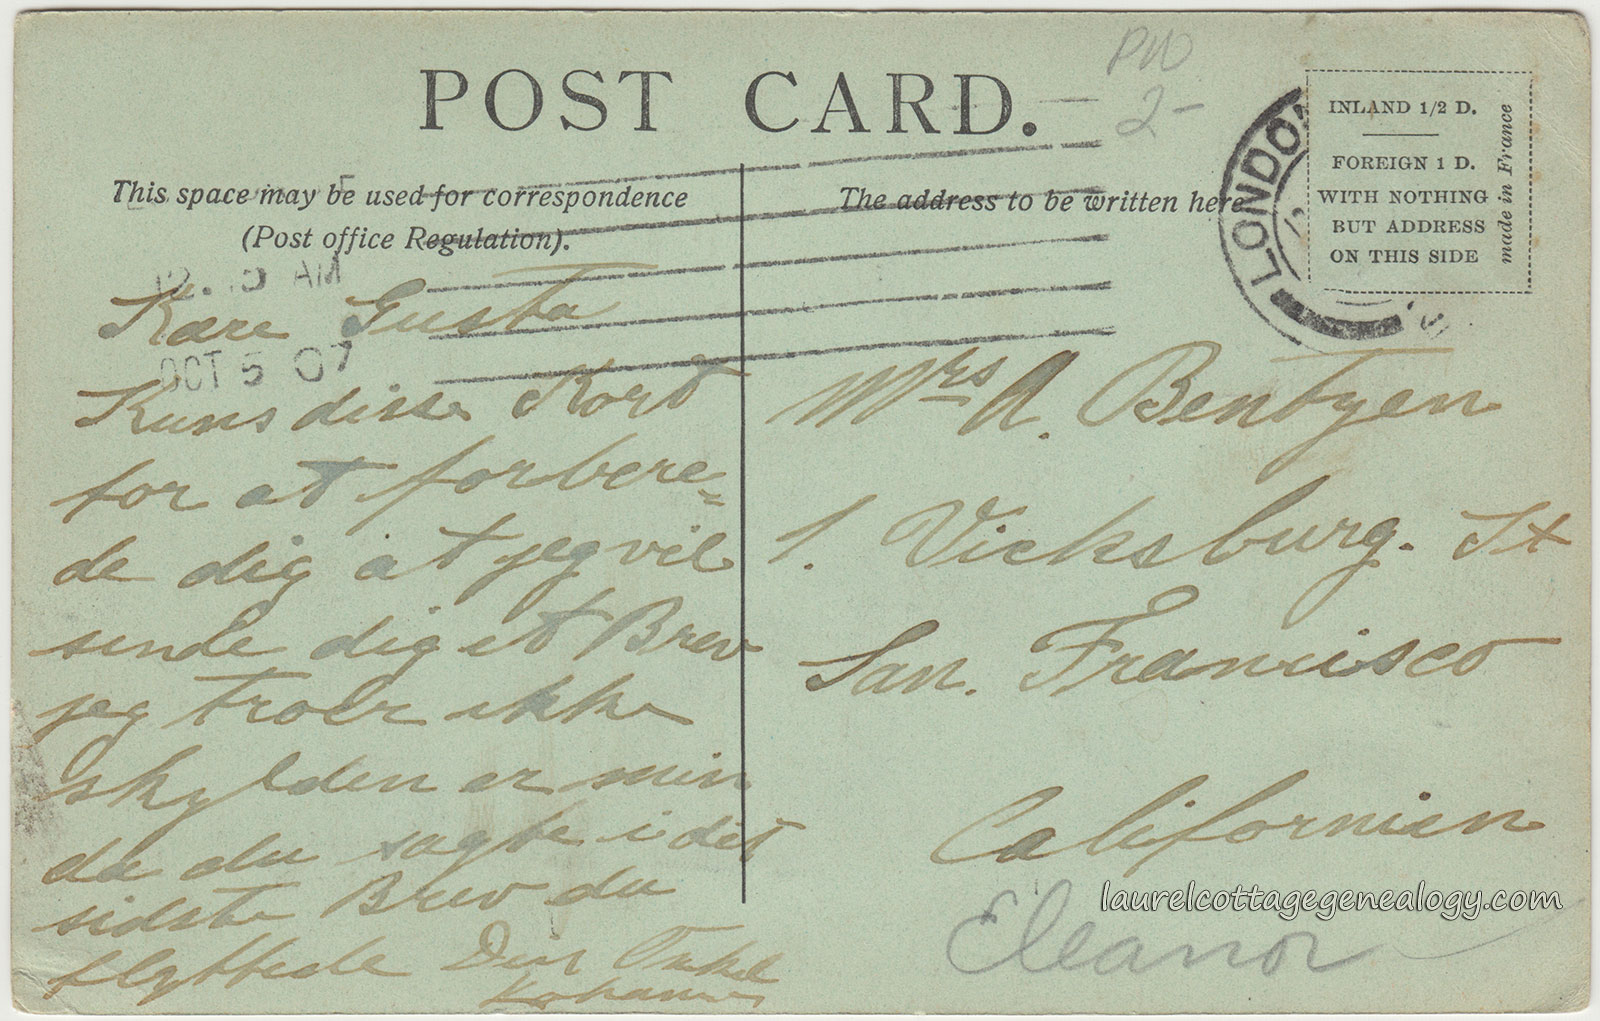 POST CARD.
PW
2-
This space may be used for correspondence
(Post office Regulation).
The address to be written here
LONDON
INLAND 1/2 D.
FOREIGN 1 D.
WITH NOTHING
BUT ADDRESS
ON THIS SIDE
made in France
AM
OCT 5 07
Kære Gusta
Kuns disse Kort
for at forbere=
de dig at jeg vil
sende dig et Brev
jeg troer ikke
skylden er min
da du sagte i det
sidste Brev du
flyttede Din Onkel
Johannes
Mrs A. Bentzen
1. Vicksburg. St
San. Francisco
Californien
Eleanor
laurelcottagegenealogy.com